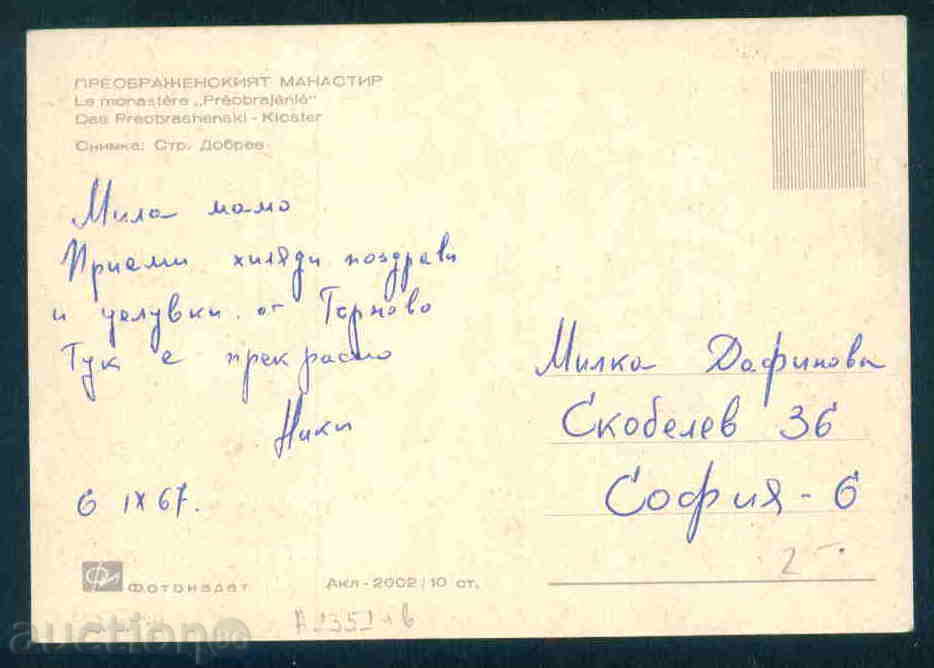 ПРЕОБРАЖЕНСКИЯТ МАНАСТИР
Le monastère „Préobrajénié“
Das Preobrashenski - Kloster
Снимка: Стр. Добрев
Мила мамо
Приеми хиляди поздрави
и целувки от Търново
Тук е прекрасно
Ники
6 IX 67.
Милка Дафинова
Скобелев 36
София - 6
2
Фотоиздат
Акл-2002/10 ст.
auction